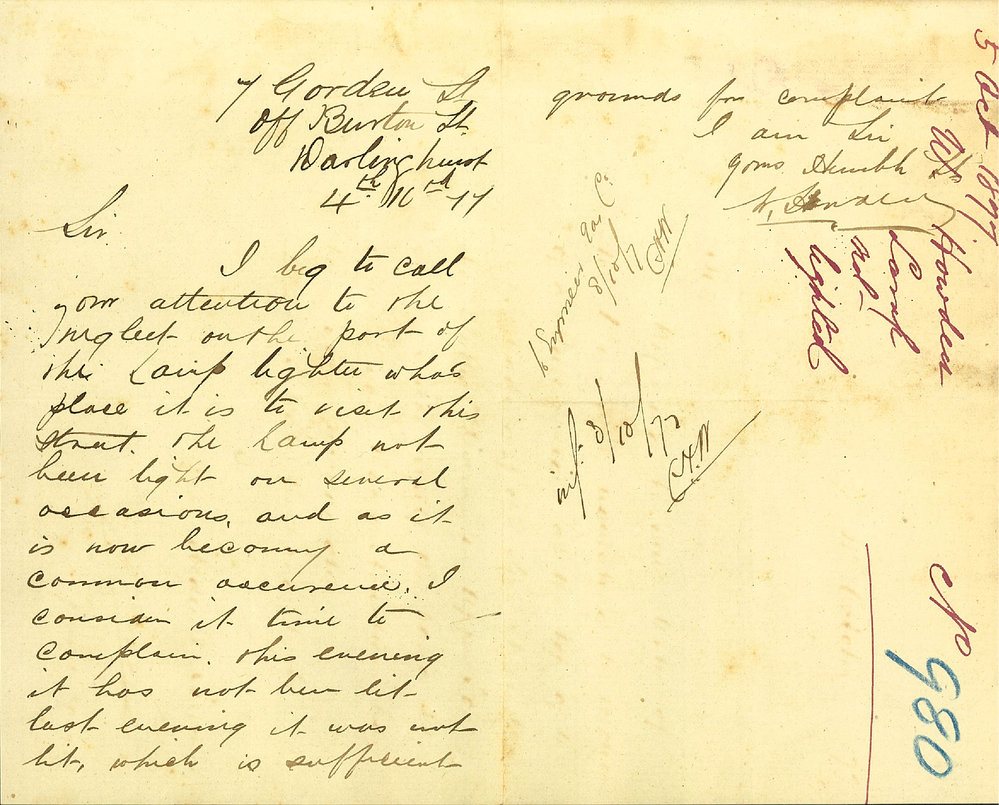 7 Gorden St
off Burton St
Darlinghurst
4th 10th 77
Sir
I beg to call
your attention to the
neglect on the part of
the Lamp lighter whos
place it is to visit this
street. the Lamp not
been light on several
occasions, and as it
is now becoming a
common occurence, I
consider it time to
complain. this evening
it has not been lit
last evening it was not
lit, which is sufficient
grounds for complaint
I am Sir
yours Humbl St
W. Howden
5 Oct 1877
Wm Howden
Lamp
not
lighted
Engineer Gas Co.
8/10/7
CHW
inf. 8/10/77
CHW
No
980